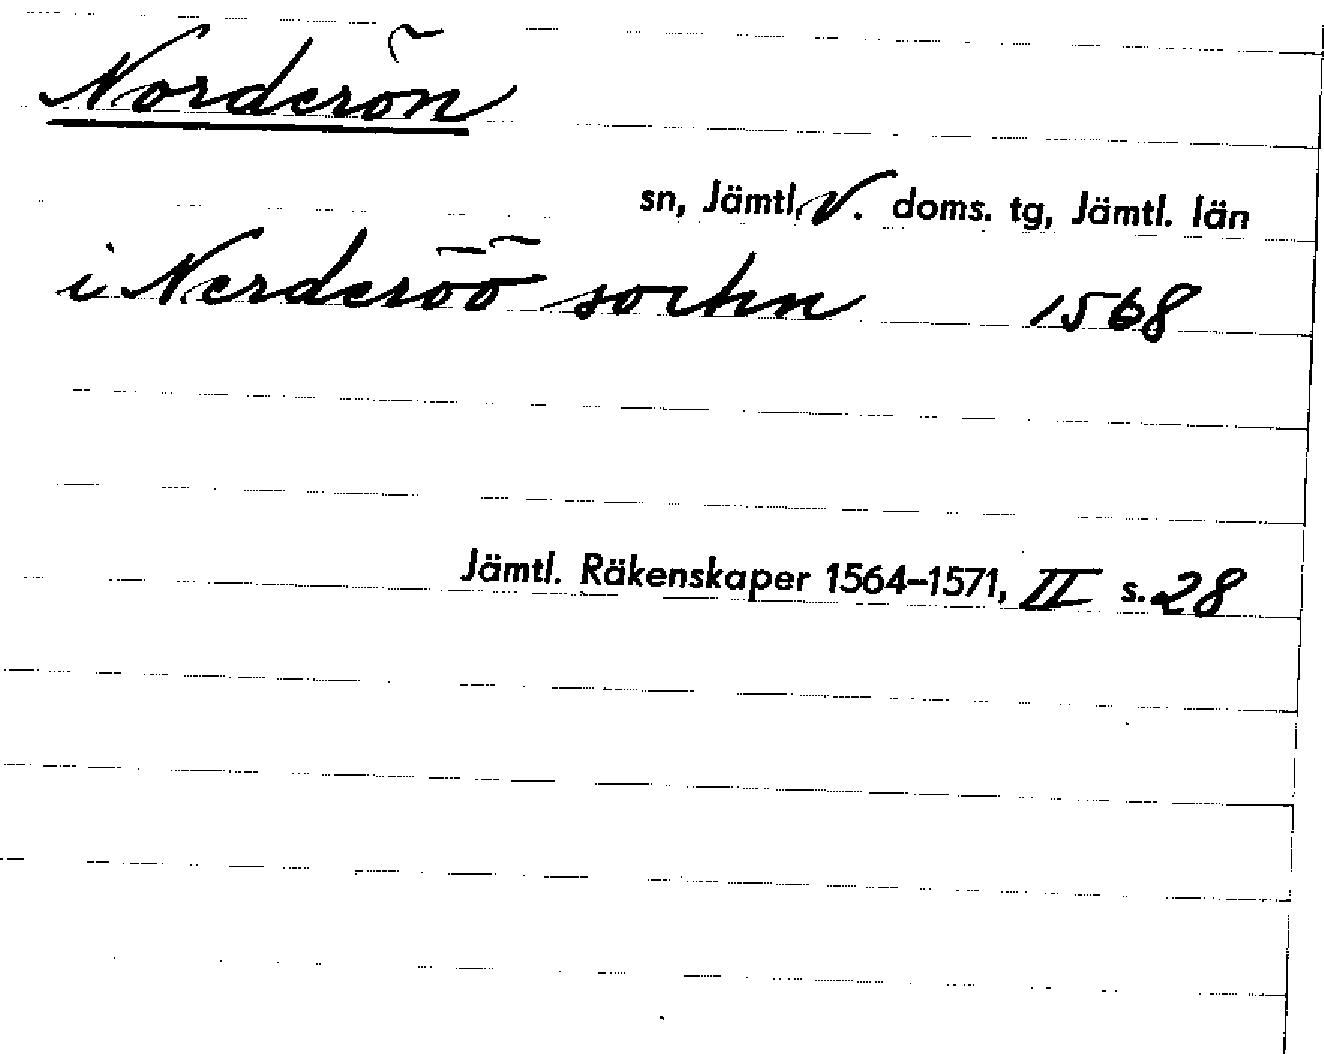 Norderön
sn, Jämtl. V. doms. tg, Jämtl. län
i Nerderöö sochn 1568
Jämtl. Räkenskaper 1564–1571, II s. 28